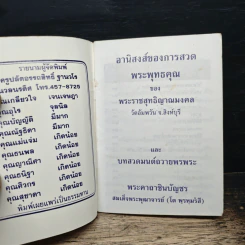 รายนามผู้จัดพิมพ์
โทร.457-8725
คุณเกลียวใจ เจนเจษฎา
จุฑนิล
คุณบัญญัติ มีมาก
คุณณัฐธิดา มีมาก
คุณแม่แจ่ม เกิดน้อย
คุณธนพล เกิดน้อย
คุณญาณิศา เกิดน้อย
คุณธนิฐา เกิดน้อย
คุณศิวกร เกิดน้อย
คุณสุชาดา เกิดน้อย
พิมพ์เผยแพร่เป็นธรรมทาน
อานิสงส์ของการสวด
พระพุทธคุณ
ของ
พระราชสุทธิญาณมงคล
วัดอัมพวัน จ.สิงห์บุรี
และ
บทสวดมนต์ถวายพรพระ
พระคาถาชินบัญชร
สมเด็จพระพุฒาจารย์ (โต พฺรหฺมรํสี)